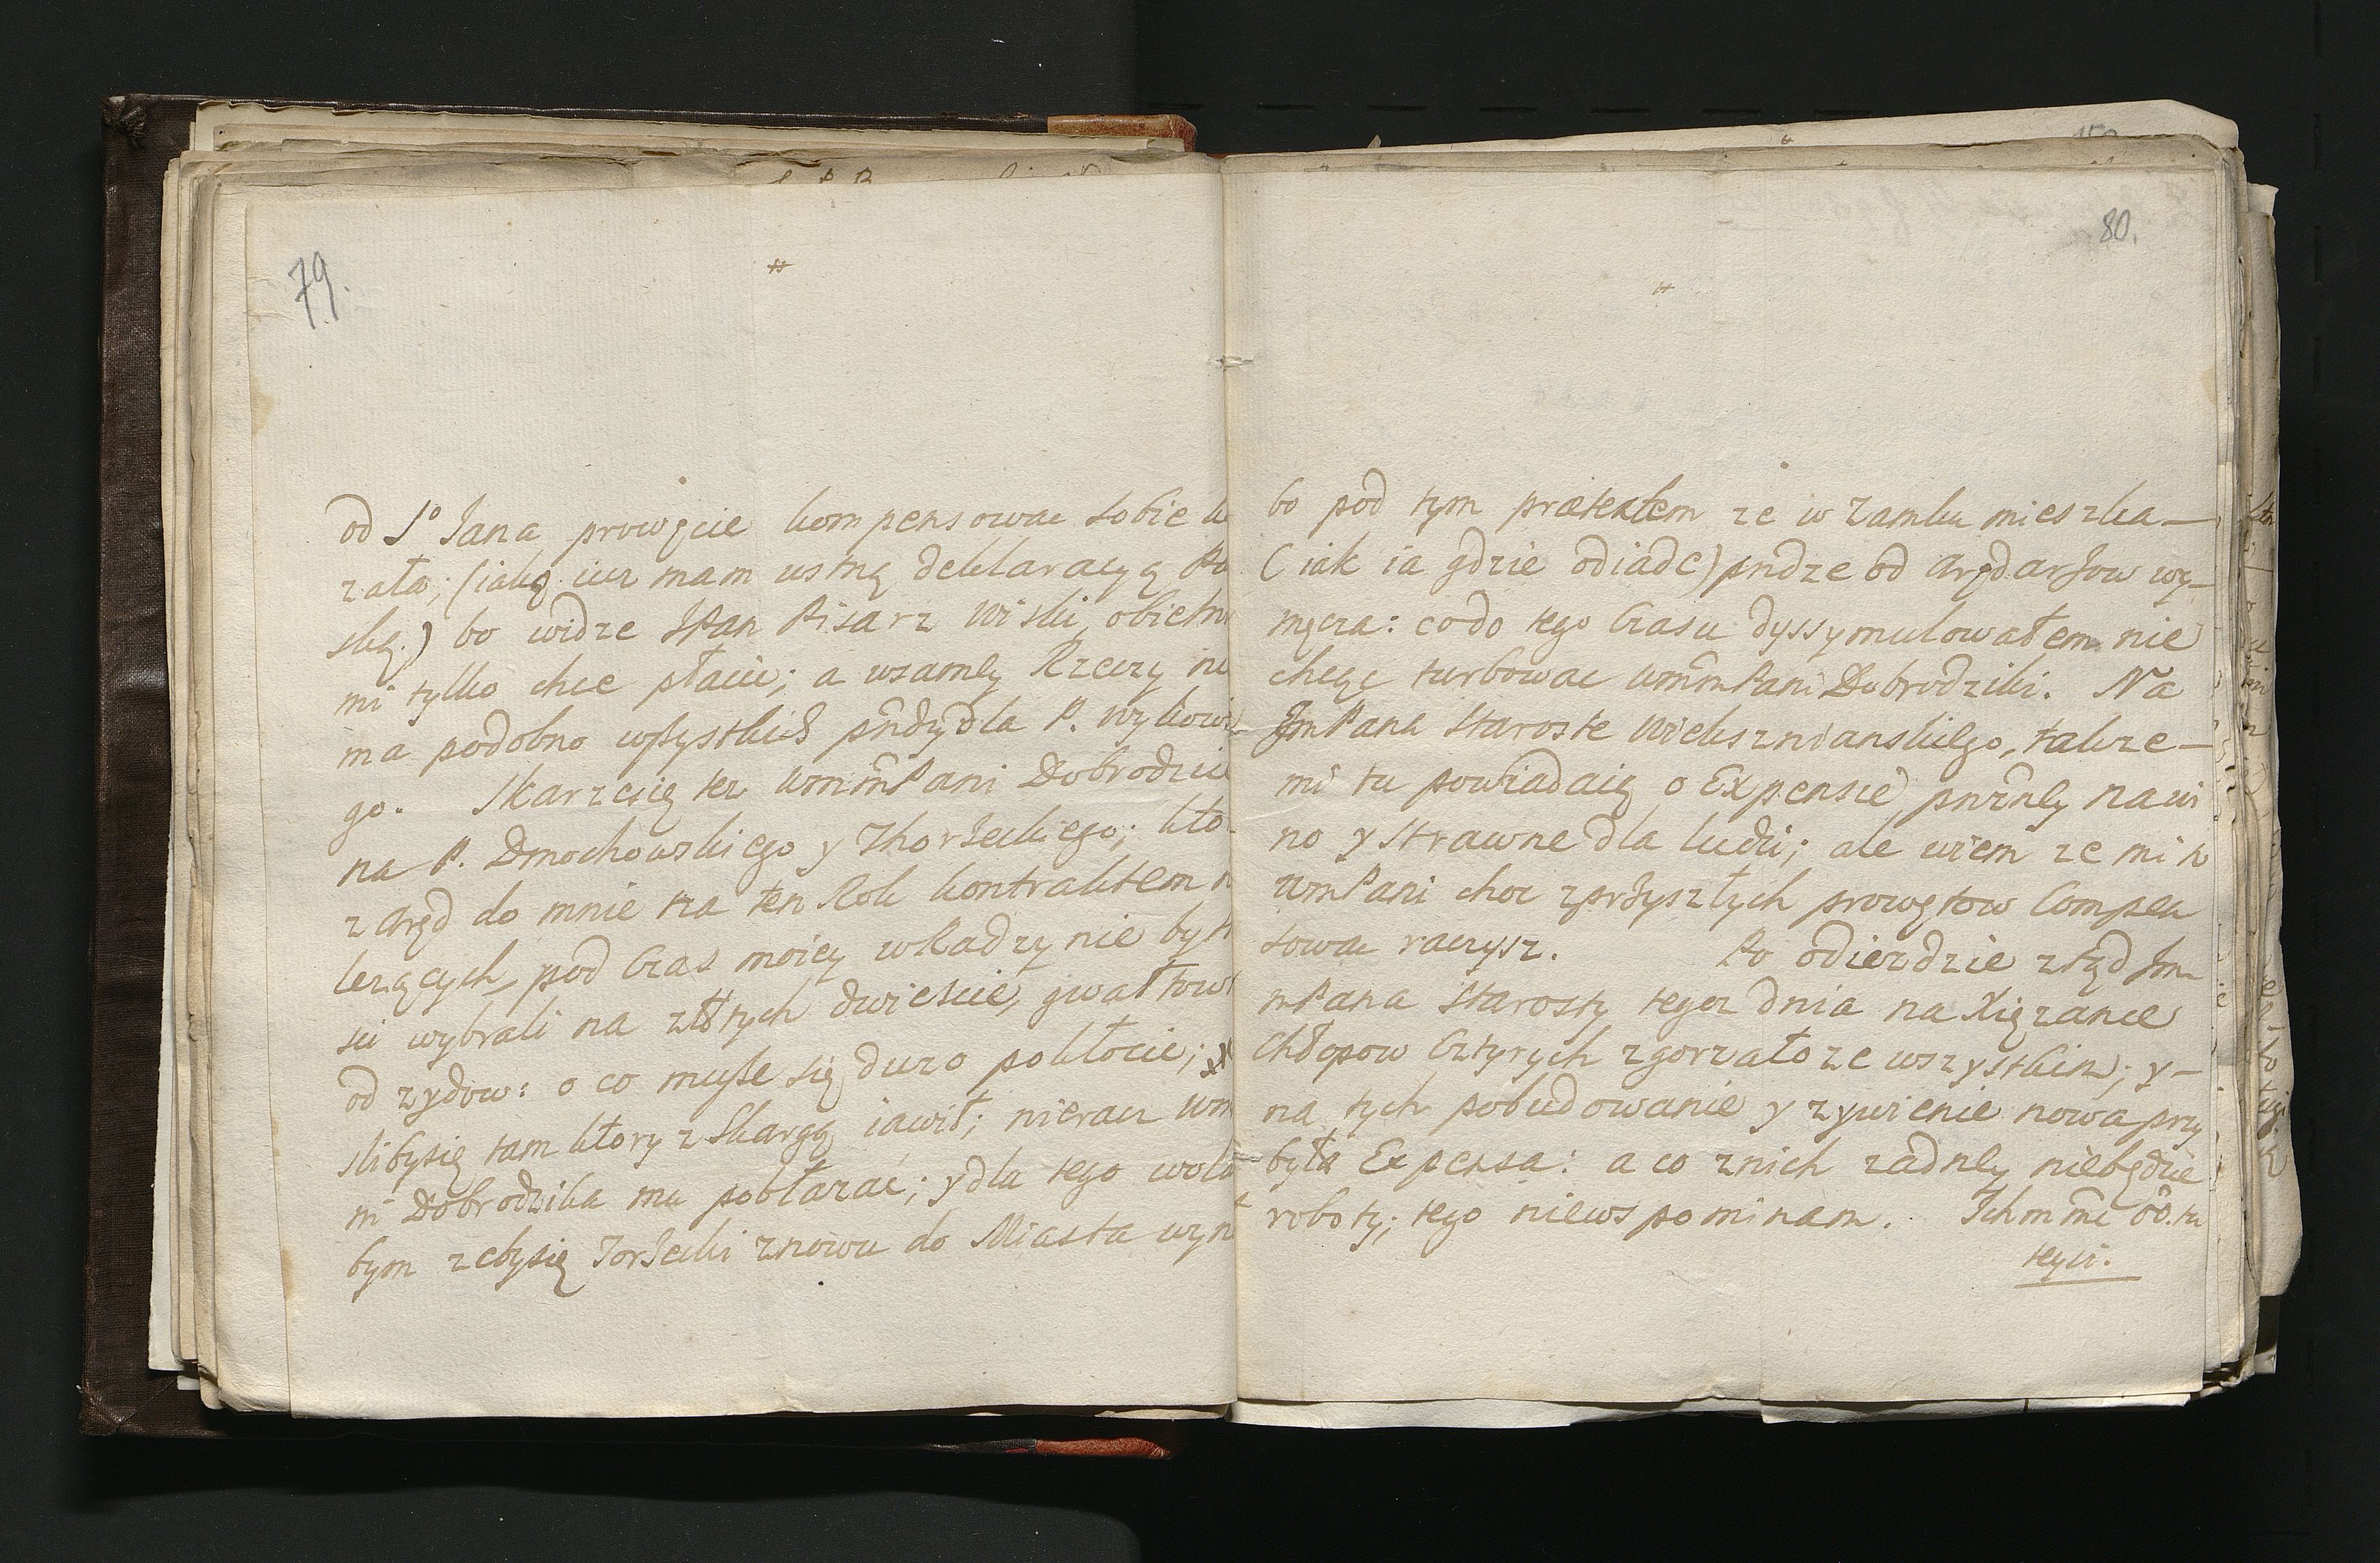 79.
od So Jana prowęcie kompensowac sobie k
zała; (iaką iuz mam ustną deklaracyą Po
ską.) bo widze JPan Pisarz Wiski obietni
mi tylko chce płacić; a wsamey Rzeczy nie
ma podobno wszystkich pńdzy dla P. Wykows
go. Skarzesię tez WmmPani Dobrodzie
na P. Dmochowskiego y Zhorzeckiego; kto
z Aręd do mnie na ten Rok kontraktem n
lezących, pod Czas moiey władzy nie byt
sci wybrali na złłtych dwiescie, gwałtow
od zydow: o co musze się duzo pokłocic;
slibysię tam ktory z Skargą iawił; nieracz Wm
ni Dobrodzika mu pobłazac; y dla tego wolo
bym zebysię Zorzecki znowu do Miasta wyn
80.
bo pod tym prætextem ze w Zamku mieszka
(iak ia gdzie odiadę) pńdze od Arędarzow wy-
męcza: co do tego Czasu dyssymulowałem nie
chcąc turbowac WmmPani Dobrodziki. Na
JmPana Staroste Wieksznianskiego, takze
mi tu powiadaią o Expensie pńlney na wi
no y strawne dla ludzi; ale wiem ze mi to
WmPani choc z przyszłych prowętow Compen
sowac raczysz. Po odiezdzie ztąd Jm
mPana Starosty tegoz dnia na Xięzance
Chłopow Cztyrych zgorzało ze wszystkim; y
na tych pobudowanie y zywienie nowa przy
była Expensa: a co znich zadney niebędzie
roboty; tego niewspominam. Ichmmc OO. tu
teyśi.